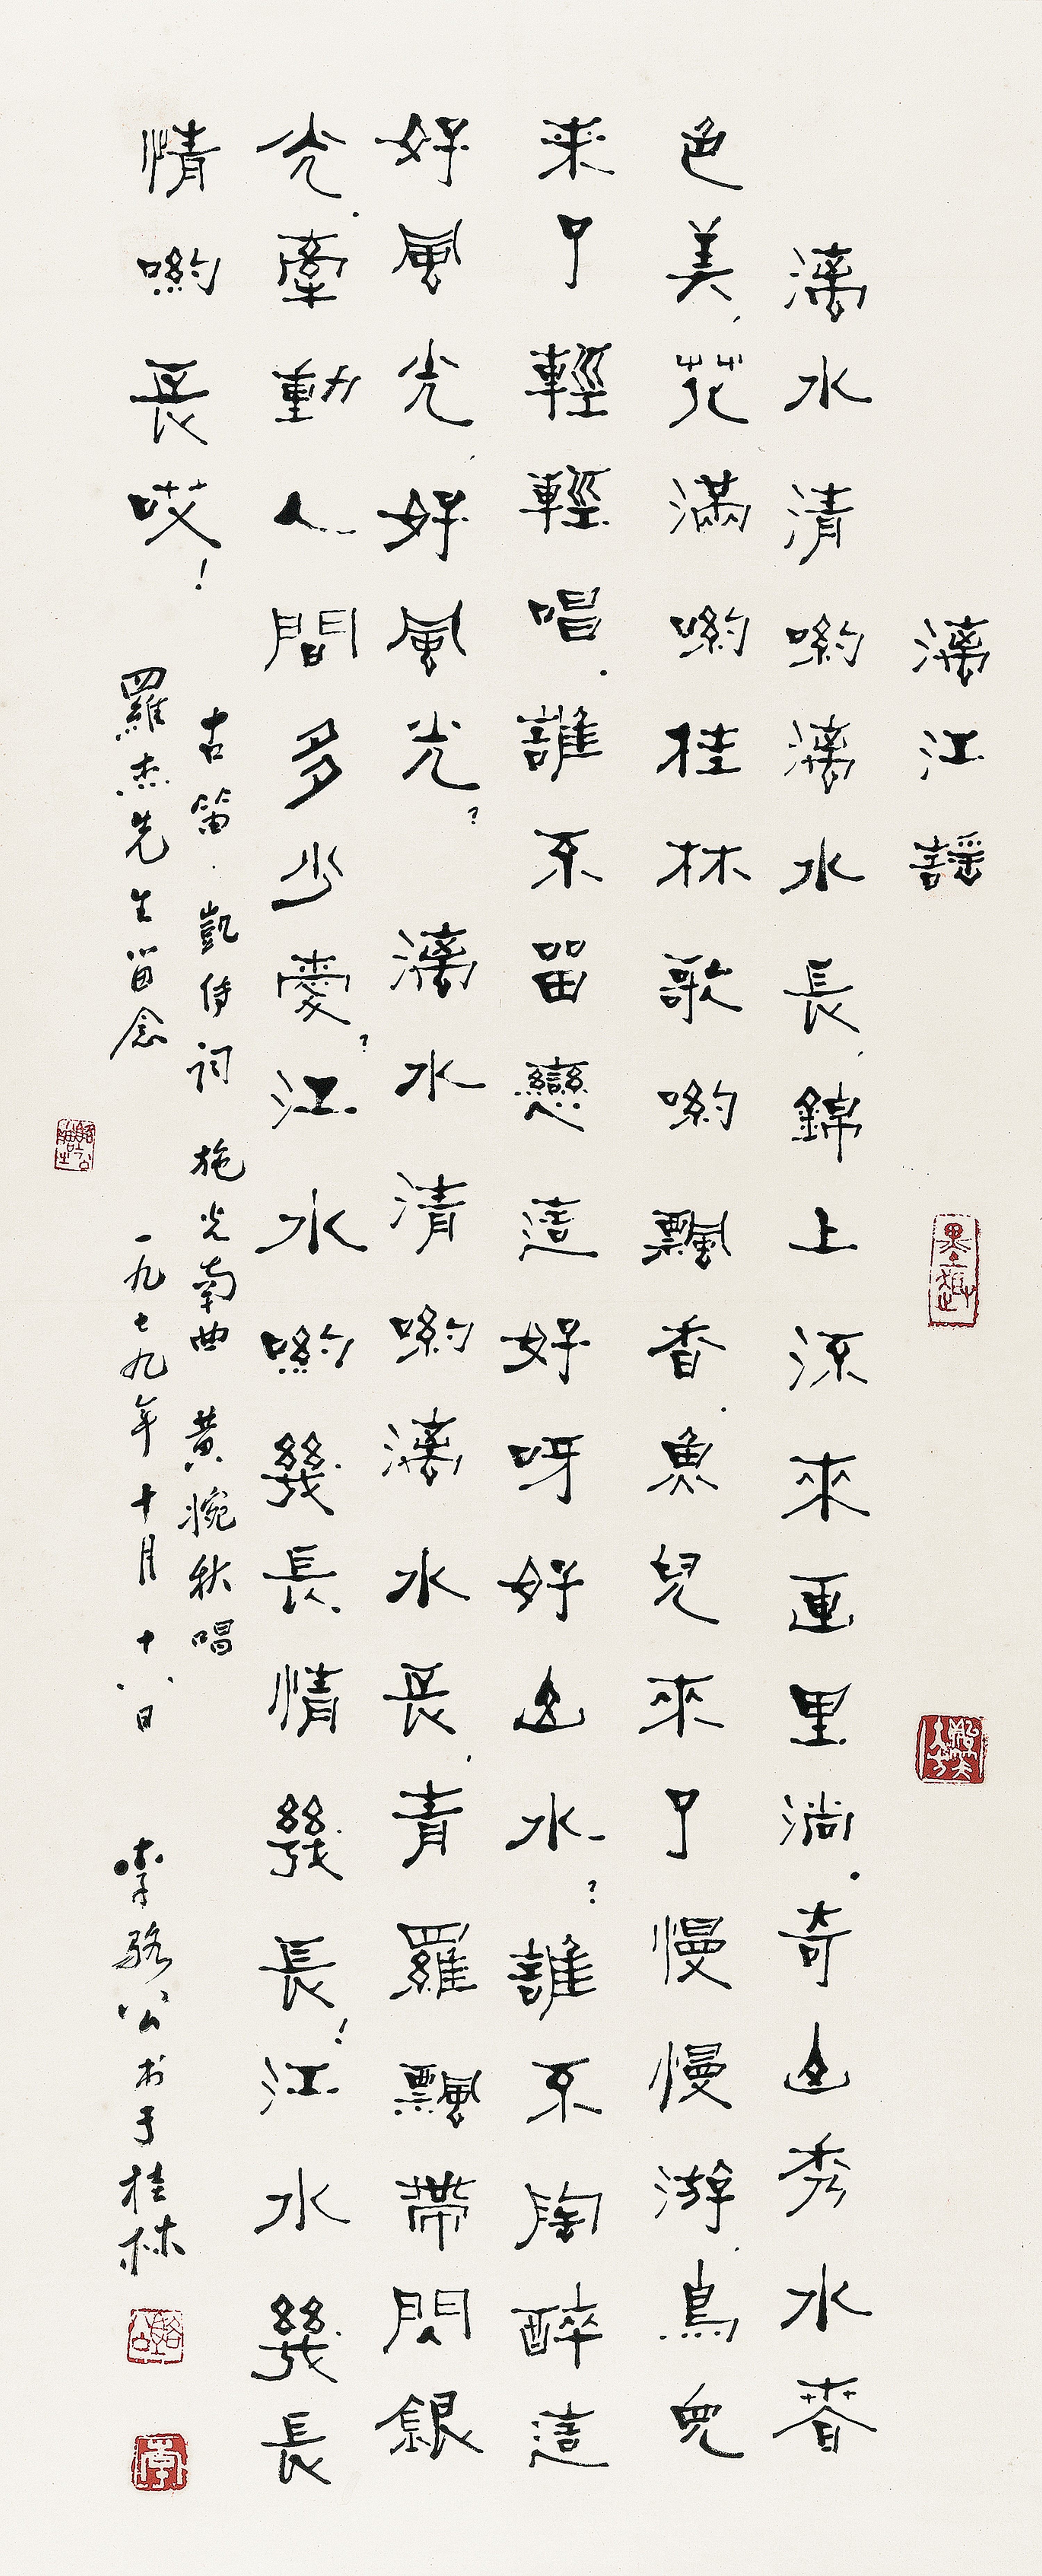 漓江謠
漓水清喲漓水長,錦上流來画里淌.奇山秀水春
色美,花滿喲桂林歌喲飄香.魚兒來了慢慢游,鳥兒
来了輕輕唱.誰不留戀這好呀好山水?誰不陶醉這
好風光,好風光?漓水清喲漓水長,青羅飄帶閃銀
光.牽動人間多少愛?江水喲幾長情幾長!江水幾長
情喲長哎!
古笛·凱傳詞 施光南曲 黃婉秋唱
羅杰先生留念 一九七九年十月十八日 李駱公书于桂林